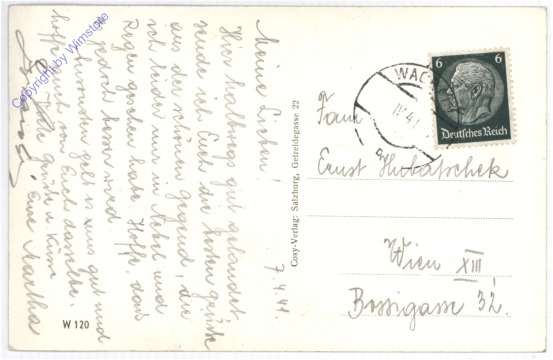 Meine Lieben!
Hier halbwegs gut gelandet
sende ich Euch die besten Grüße
aus der schönen Gegend, die
ich leider nur in Nebel und
Regen gesehen habe. Hoffe, dass
jedoch besser wird.
Ansonsten geht es uns gut und
hoffe auch von Euch dasselbe.
Grüße u. Küsse
Eure Martha
7.4.41.
W 120
Cosy-Verlag: Salzburg, Getreidegasse 22
6 6
Deutsches Reich
WAG
IV 41
Fam
Ernst Hubatschek
Wien XIII
Bossigasse 32.
Copyright by Wimstore